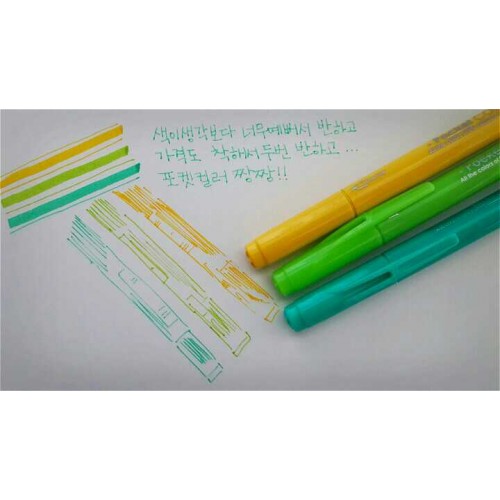 색이생각보다 너무예뻐서 반하고
가격도 착해서두번 반하고 ...
포켓컬러 짱짱!!
All the colors